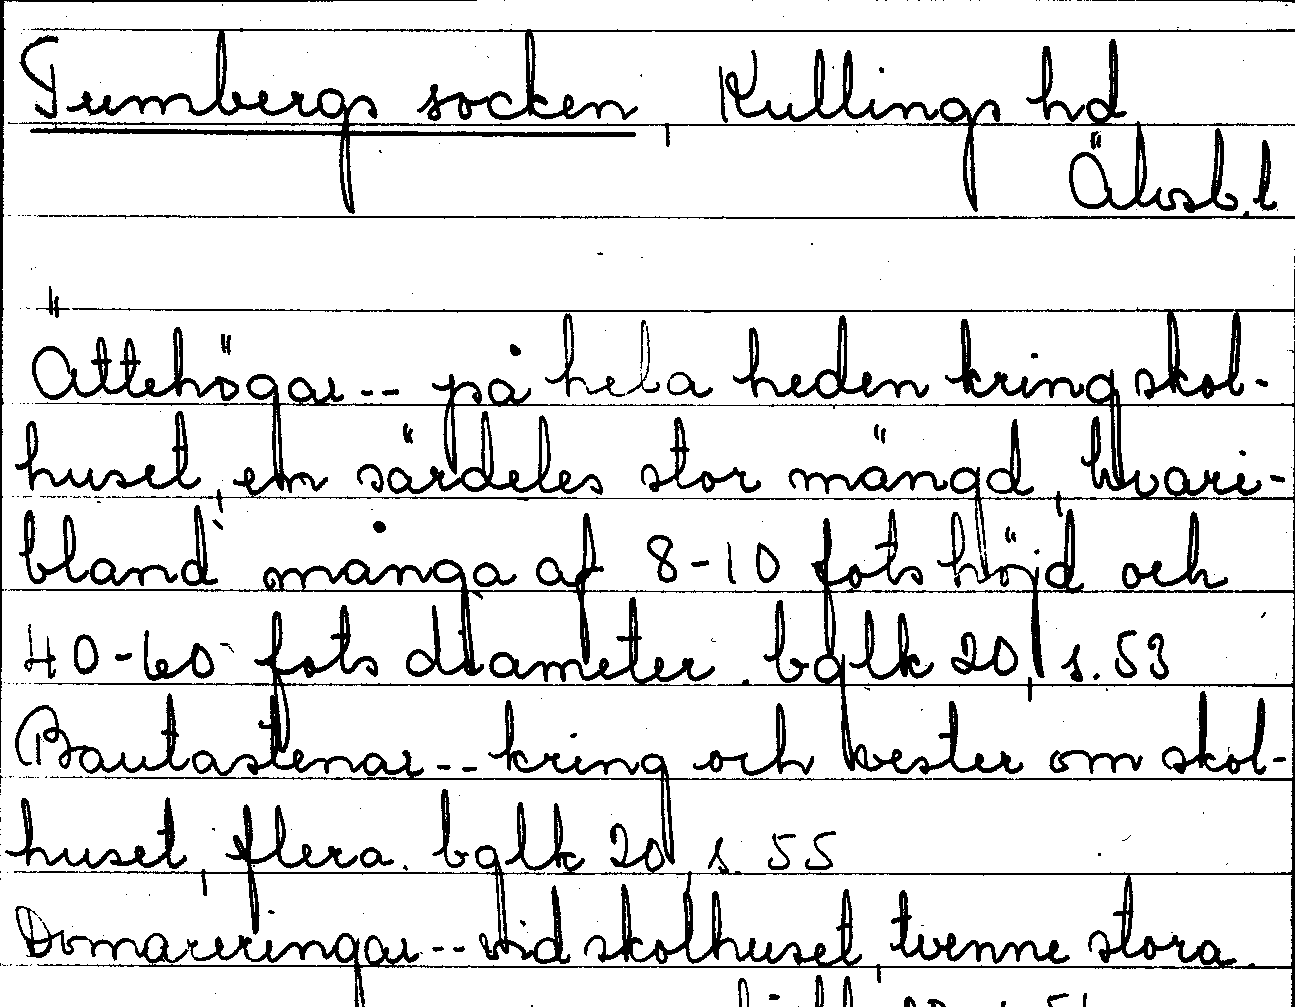 Tumbergs socken, Kullings hd
Älvsb.l
Ättehögar -- på hela heden kring skol-
huset, en särdeles stor mängd, hvari-
bland många af 8-10 fots höjd och
40-60 fots diameter. bglk 20, s. 53
Bautastenar -- kring och vester om skol-
huset, flera. bglk 20 s. 55
Domareringar -- vid skolhuset, tvenne stora.